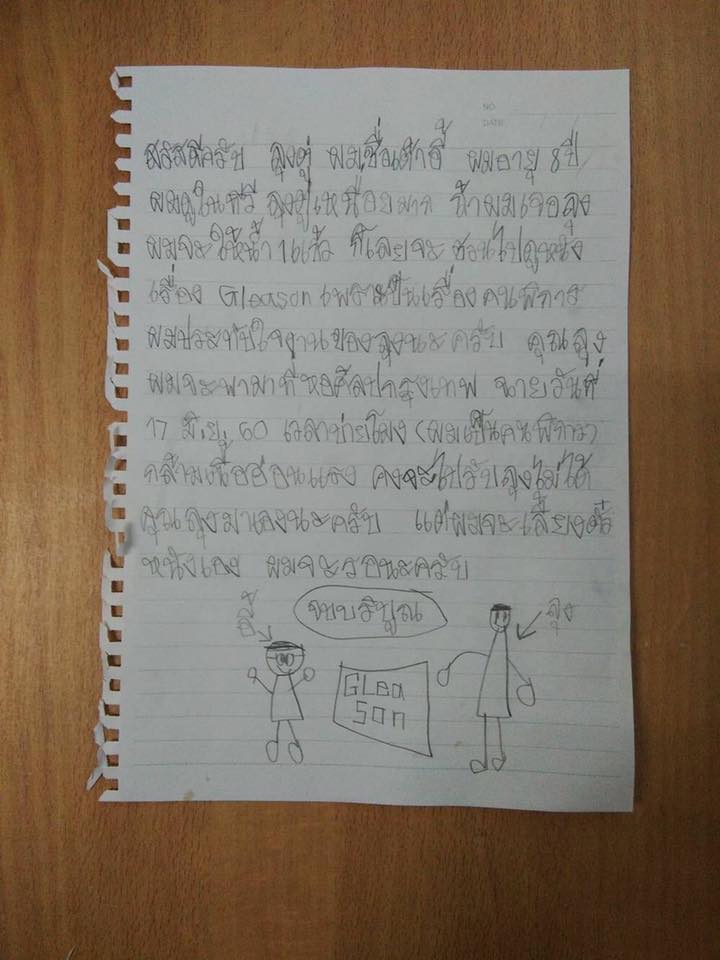 NO.
DATE
สวัสดีครับ ลุงตู่ ผมชื่อเต้าอี้ ผมอายุ 8 ปี
ผมดูในทีวี ลุงตู่เหนื่อยมาก ถ้าผมเจอลุง
ผมจะให้น้ำ 1 แก้ว ก็เลยจะชวนไปดูหนัง
เรื่อง Gleason เพราะเป็นเรื่องคนพิการ
ผมประทับใจงานของลุงนะครับ คุณลุง
ผมจะพามาที่หอศิลปกรุงเทพ ฉายวันที่
17 มิ.ย. 60 เวลาบ่ายโมง (ผมเป็นคนพิการ)
กล้ามเนื้ออ่อนแรง คงจะไปรับลุงไม่ได้
คุณลุงมาเองนะครับ แต่ผมจะเลี้ยงตั๋ว
หนังเอง ผมจะรอนะครับ
จบบริบูรณ์
อี้
ลุง
GLea
Son